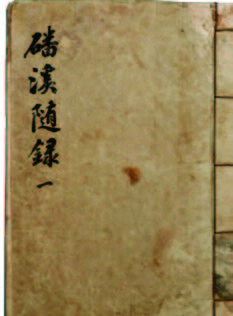 磻溪隨錄 一